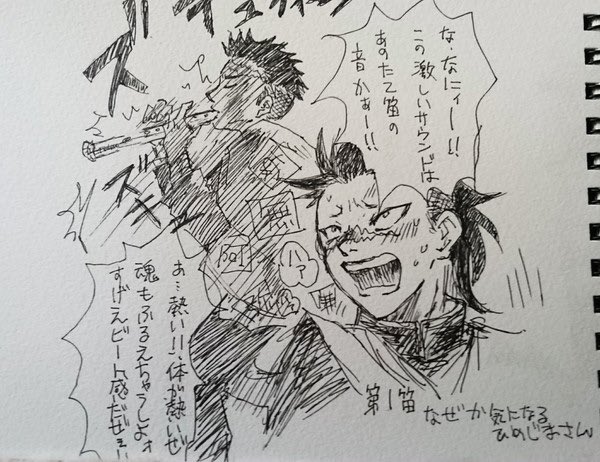 な・なにィー!!
この激しいサウンドは
あのたて笛の
音かぁー!!
ハァ
無
阿
無
ズギュ
あ…熱い!!体が熱いぜ
魂もふるえちゃうしよォ
すげえビート感だぜぇ!!
第1笛
なぜか気になる
ひめじまさん